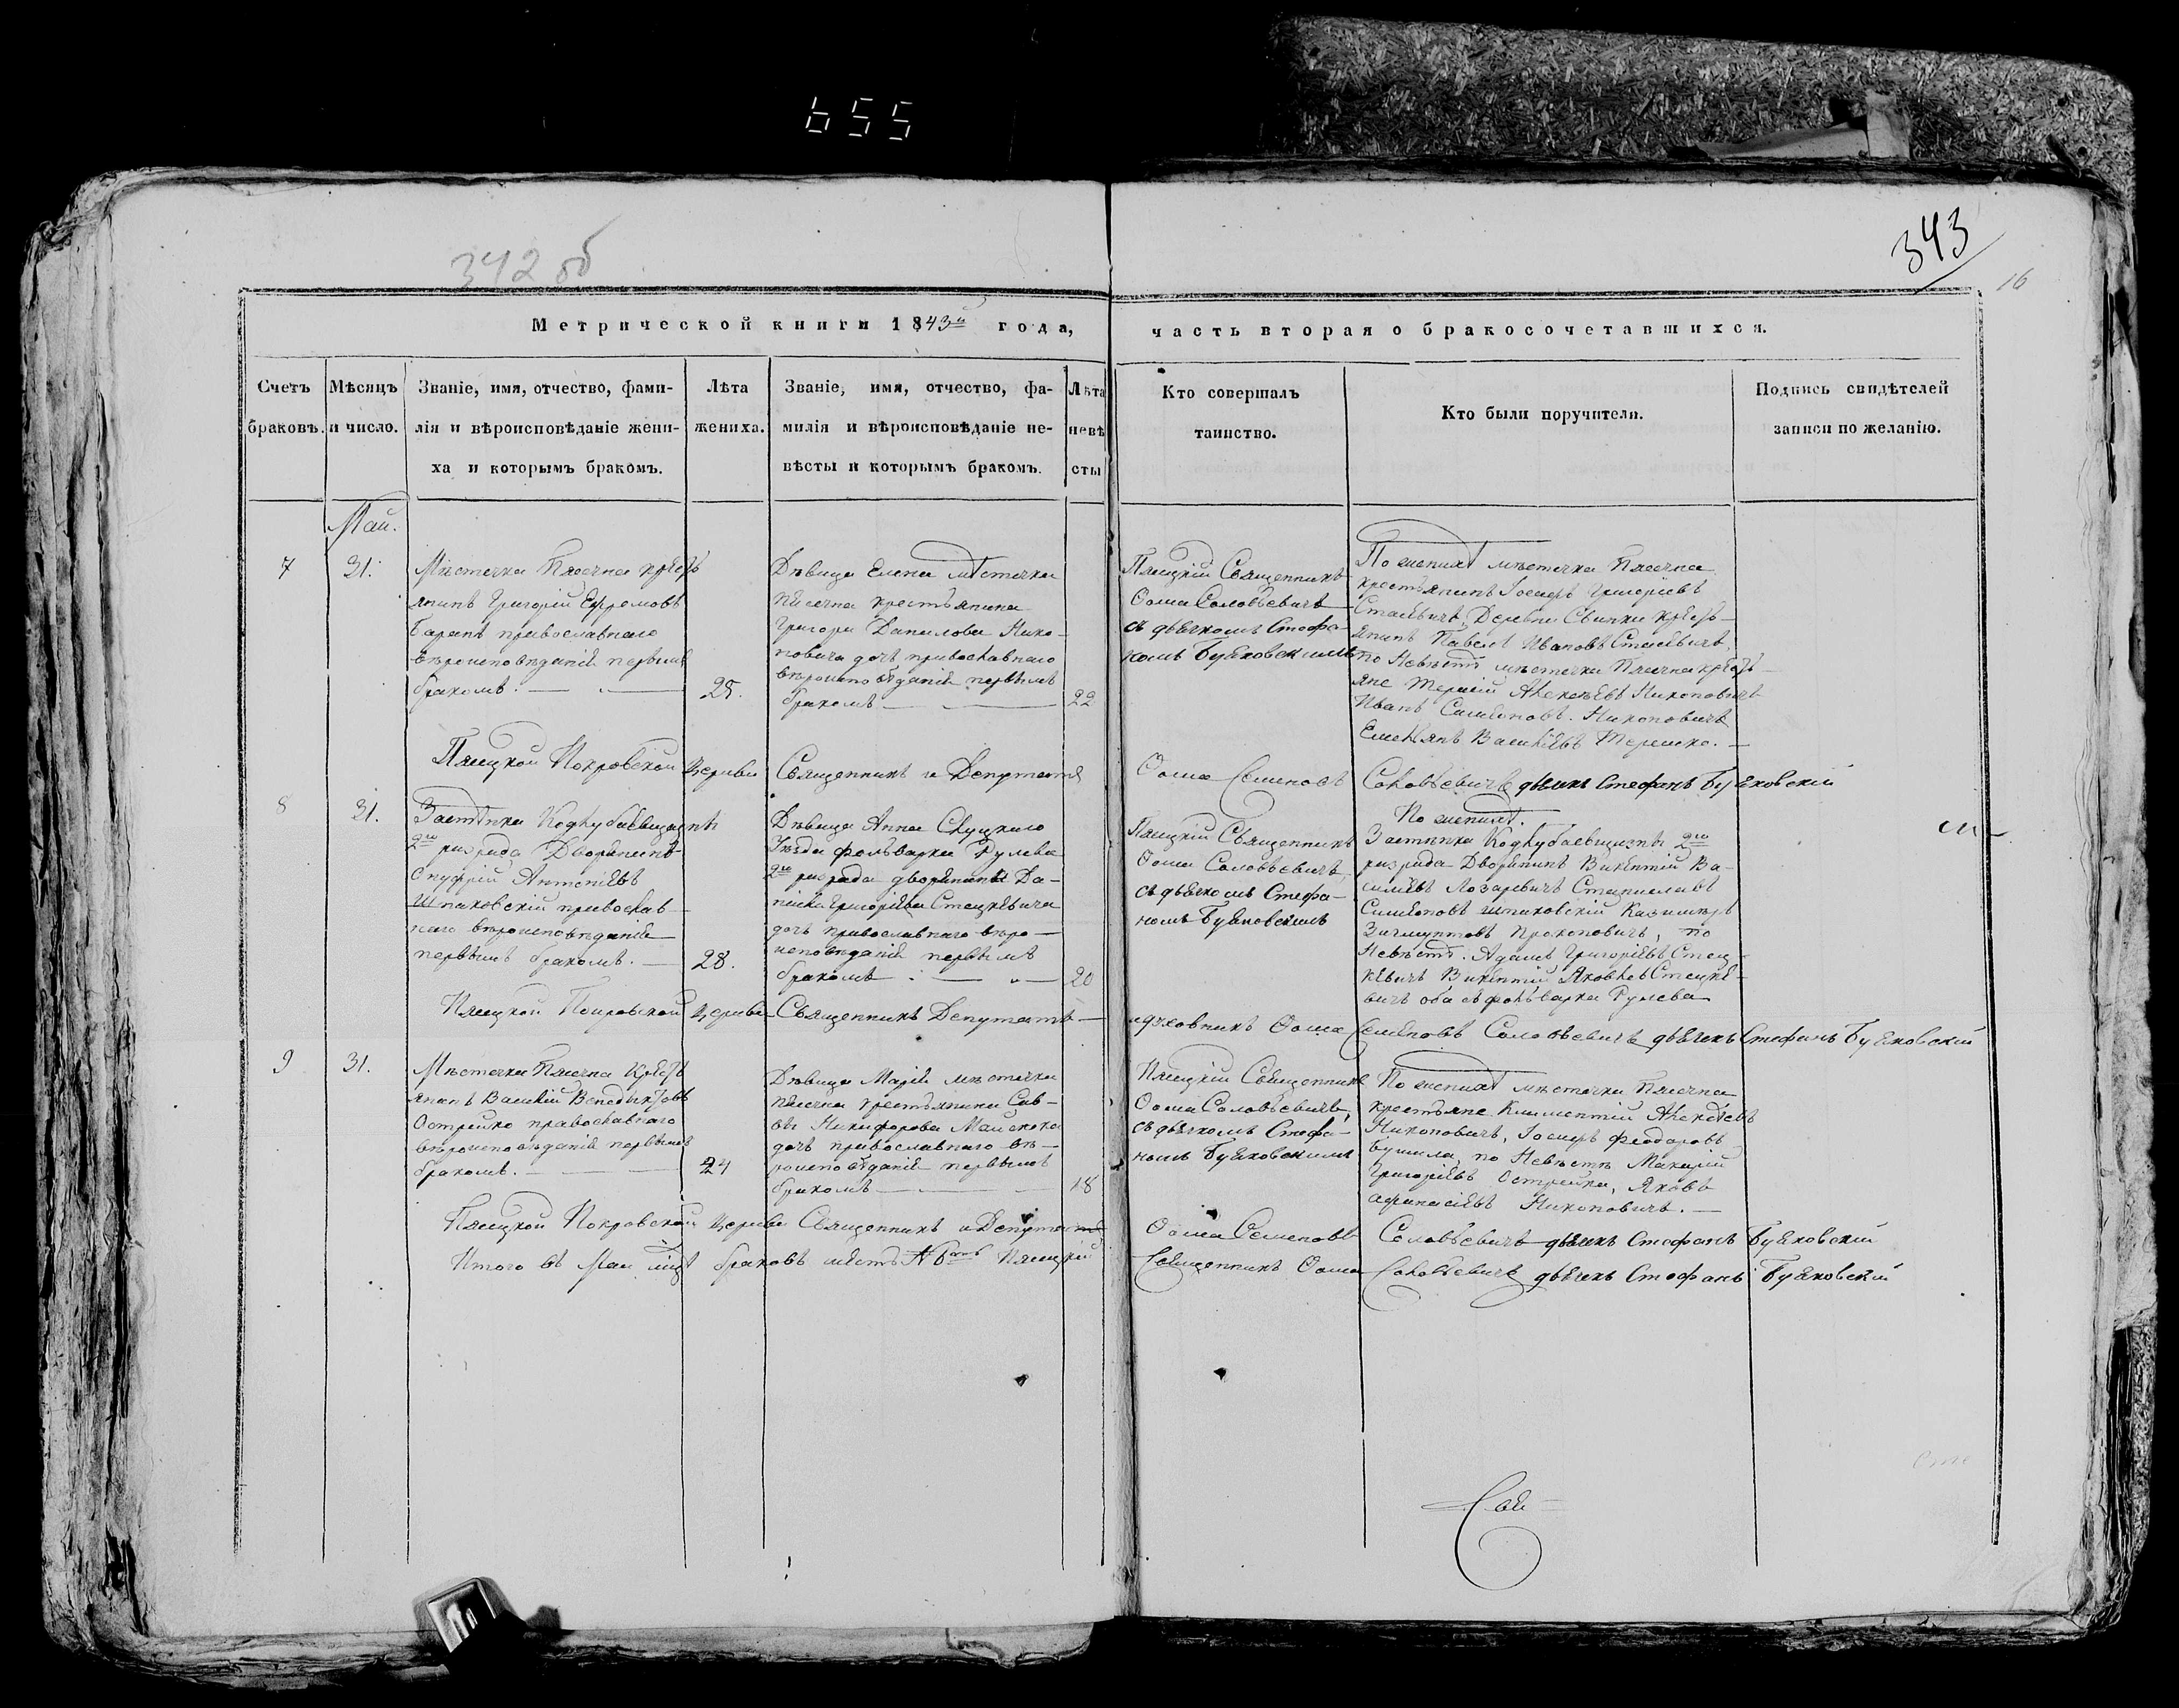 655
342 об
343
16
Метрической книги 1843й года, часть вторая о бракосочетавшихся.
Счетъ браковъ.
Мѣсяцъ и число.
Званіе, имя, отчество, фами-
лія и вѣроисповѣданіе жени-
ха и которымъ бракомъ.
Лѣта
жениха.
Званіе, имя, отчество, фа-
милія и вѣроисповѣданіе не-
вѣсты и которымъ бракомъ.
Лѣта
невѣ
сты
Кто совершалъ
таинство.
Кто были поручители.
Подпись свидѣтелей
записи по желанію.
Май.
7
31.
Мѣстечка Пясечна крестъ
янинъ Григорій Ефремовъ
Баранъ православнаго
вѣроисповѣданія первымъ
бракомъ.
25.
Дѣвица Елена мѣстечка
Пясечна крестьянина
Григорія Данилова Нико-
новича дочь православнаго
вѣроисповѣданія первымъ
бракомъ
22
Священникъ
Ѳома Соловьевичъ
съ дьячкомъ Стефа-
номъ Буяковскимъ
По женихѣ мѣстечка Пясечна
крестьянинъ Іосифъ Григорьевъ
Стасевичъ, Деревни Свинки крестъ-
янинъ Павелъ Ивановъ Стасевичъ,
по Невѣстѣ мѣстечка Пясечна крестъ-
яне Алексѣевъ Никоновичъ
Иванъ Симеоновъ Никоновичъ
Емельянъ Васильевъ Терешко.
Покровской Церкви Священникъ и Депутатъ Ѳома Семеновъ Соловьевичъ дьячекъ Стефанъ Буяковскій
8
31.
Застѣнка
2го разряда Дворянинъ
Онуфрій Антоніевъ
Шпаковскій православ-
наго вѣроисповѣданія
первымъ бракомъ.
28.
Дѣвица Анна Слуцкаго
Уѣзда фольварка Рулева
2го разряда дворянина Да-
ніила Григорьева Стецкевича
дочь православнаго вѣро-
исповѣданія первымъ
бракомъ
20
Священникъ
Ѳома Соловьевичъ,
съ дьячкомъ Стефа-
номъ Буяковскимъ
По женихѣ.
Застѣнка 2го
разряда Дворянинъ Викентій Ва-
сильевъ Лазаревичъ Станиславъ
Симеоновъ Шпаковскій Казимиръ
Прокоповичъ, по
Невѣстѣ. Адамъ Григорьевъ Стец-
кевичъ Викентій Яковлевъ Стецке-
вичъ оба съ фольварка Рулева
Покровской Церкви Священникъ Депутатъ и духовникъ Ѳома Семеновъ Соловьевичъ дьячекъ Стефанъ Буяковскій
9
31.
Мѣстечка Пясечна Крестъ
янинъ Василій Венедиктовъ
Острейко православнаго
вѣроисповѣданія первымъ
бракомъ.
24
Дѣвица Марія мѣстечка
Пясечна крестьянина Сав-
вы Никифорова
дочь православнаго вѣ-
роисповѣданія первымъ
бракомъ
18
Священникъ
Ѳома Соловьевичъ,
съ дьячкомъ Стефа-
номъ Буяковскимъ
По женихѣ мѣстечка Пясечна
крестьяне Климентій Алексѣевъ
Никоновичъ, Іосифъ Феодоровъ
по Невѣстѣ Макарій
Григорьевъ Острейка, Яковъ
Афанасіевъ Никоновичъ.
Покровской Церкви Священникъ и Депутатъ Ѳома Семеновъ Соловьевичъ дьячекъ Стефанъ Буяковскій
Итого въ Маи браковъ шесть № 6 Священникъ Ѳома Соловьевичъ дьячекъ Стефанъ Буяковскій